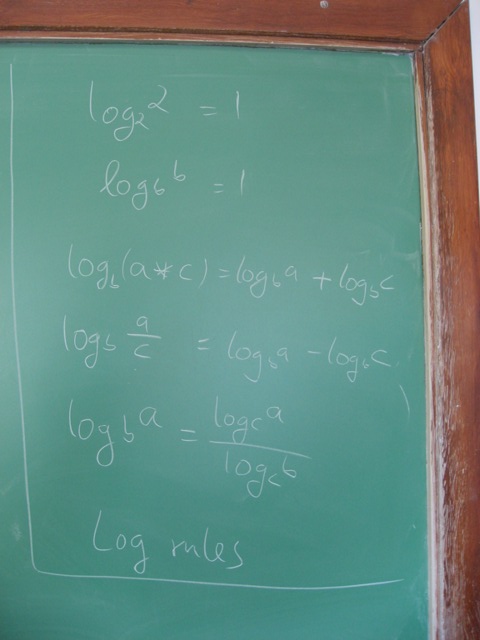 log₂2 = 1
log_b b = 1
log_b(a*c) = log_b a + log_b c
log_b a/c = log_b a - log_b c
log_b a = log_c a / log_c b
Log rules